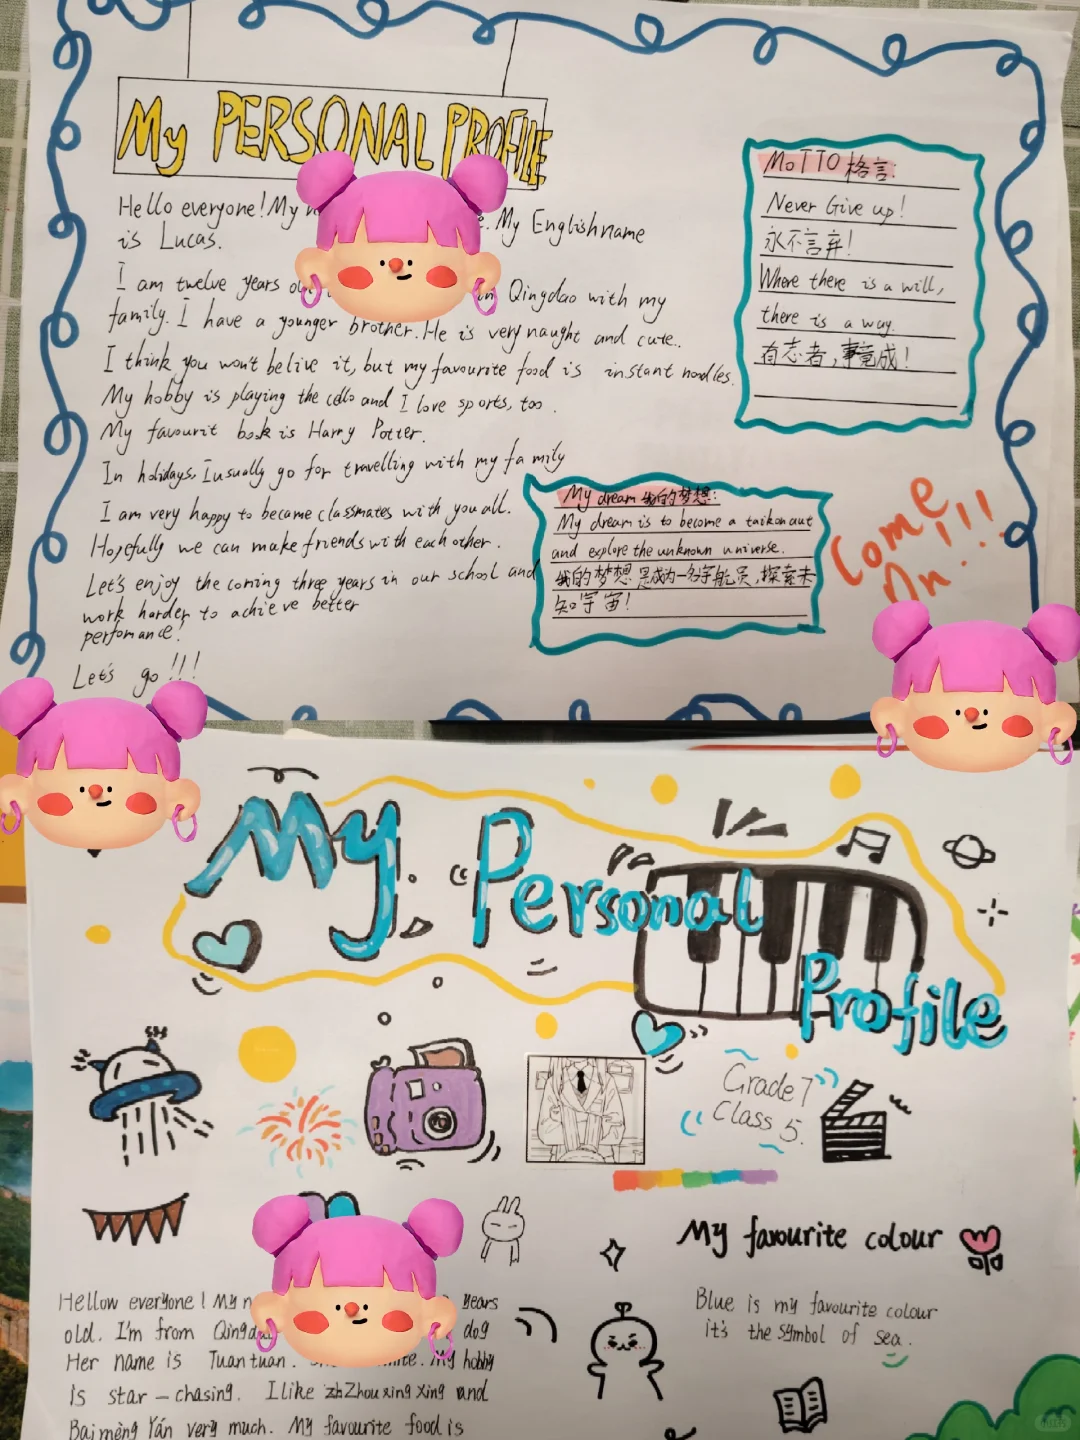 My PERSONAL PROFILE
Hello everyone! My My Englishname
is Lucas.
I am twelve years in Qingdao with my
family. I have a younger brother. He is very naught and cute..
I think you won't belive it, but my favourite food is instant noodles.
My hobby is playing the cello and I love sports, too.
My favourit book is Harry Potter.
In holidays, I usually go for travelling with my family
I am very happy to became classmates with you all.
Hopefully we can make friends with each other.
Let's enjoy the coming three years in our school and
work harder to achieve better
perfomance!
Let's go!!!
MoTTO 格言:
Never Give up!
永不言弃!
Where there is a will,
there is a way.
有志者,事竟成!
My dream 我的梦想:
My dream is to become a taikonaut
and explore the unknown universe.
我的梦想是成为一名宇航员,探索未
知宇宙!
Come
On!!!
My Personal
Profile
Grade 7
Class 5.
My favourite colour
Blue is my favourite colour
it's the symbol of sea.
Hellow everyone! My years
old. I'm from dog
Her name is Tuantuan. My hobby
is star-chasing. I like zhZhouxingXing and
Baimèng Yán very much. My favourite food is